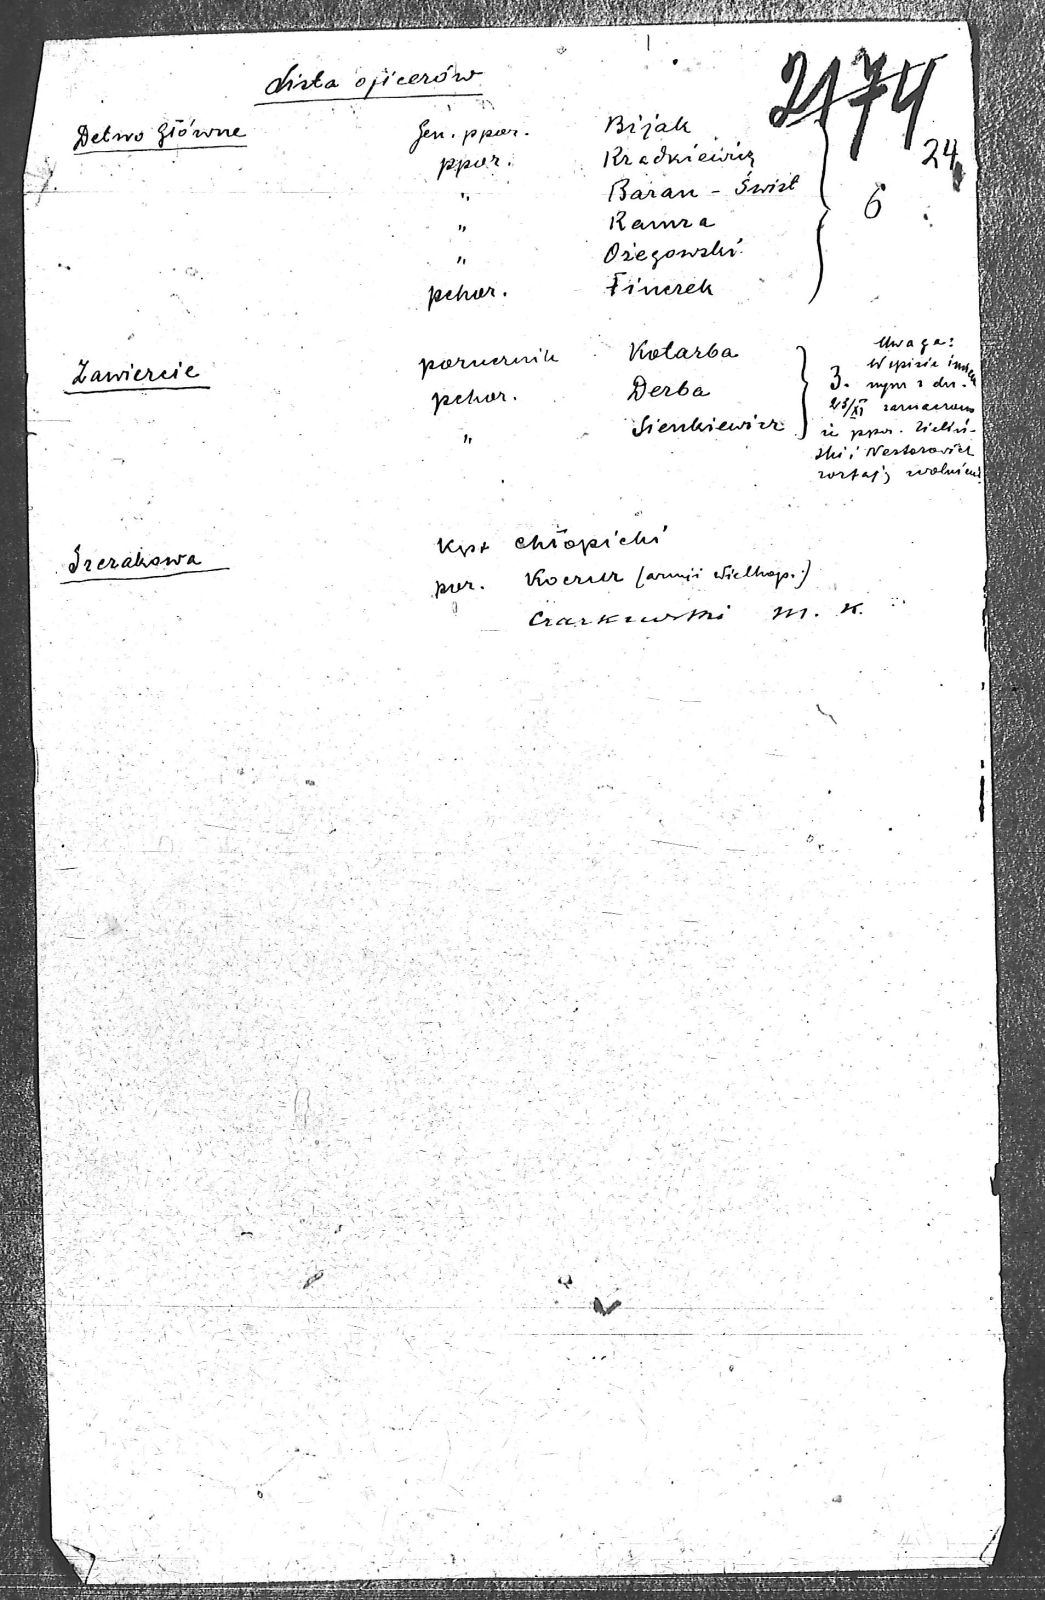 2174
24
Lista oficerów
Detwo Główne
Gen. ppor. Bijak
ppor. Kradkiewicz
" Baran - Świst
" Kamza
" Ożegowski
pchor. Fincrek
6
Zawiercie
porucznik Kotarba
pchor. Derba
" Sienkiewicz
3.
Uwaga:
W spisie imien
nym z dn.
25/XI zaznaczono
że ppor. Zieliń-
ski i Nestorowicz
zostają zwolnieni
Szczakowa
Kpt Chłopicki
por. Koczur (armii Wielkop.)
Czarkowski M. K.